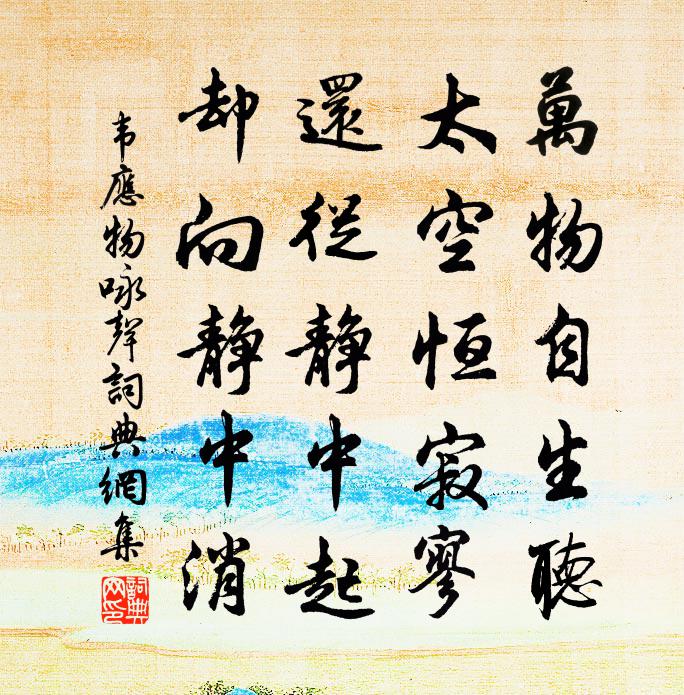 萬物自生聽
太空恒寂寥
還從靜中起
却向靜中消
韦應物咏聲詞典網集
詞典